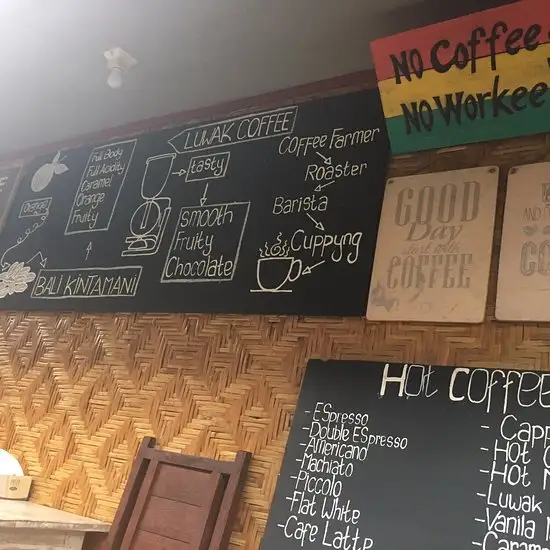 No Coffee
No Workee
LUWAK COFFEE
tasty
smooth
Fruity
Chocolate
Coffee Farmer
Roaster
Barista
Cuppyng
Full Body
Full Acidity
Caramel
Orange
Fruity
Orange
BALI KINTAMANI
GOOD
Day
COFFEE
Hot COFFEE
- ESpresso
- Double ESpresso
- Americano
- Machiato
- Piccolo
- Flat White
- Cafe Latte
- Capp
- Hot
- Hot
- Luwak
- Vanila
- Caram